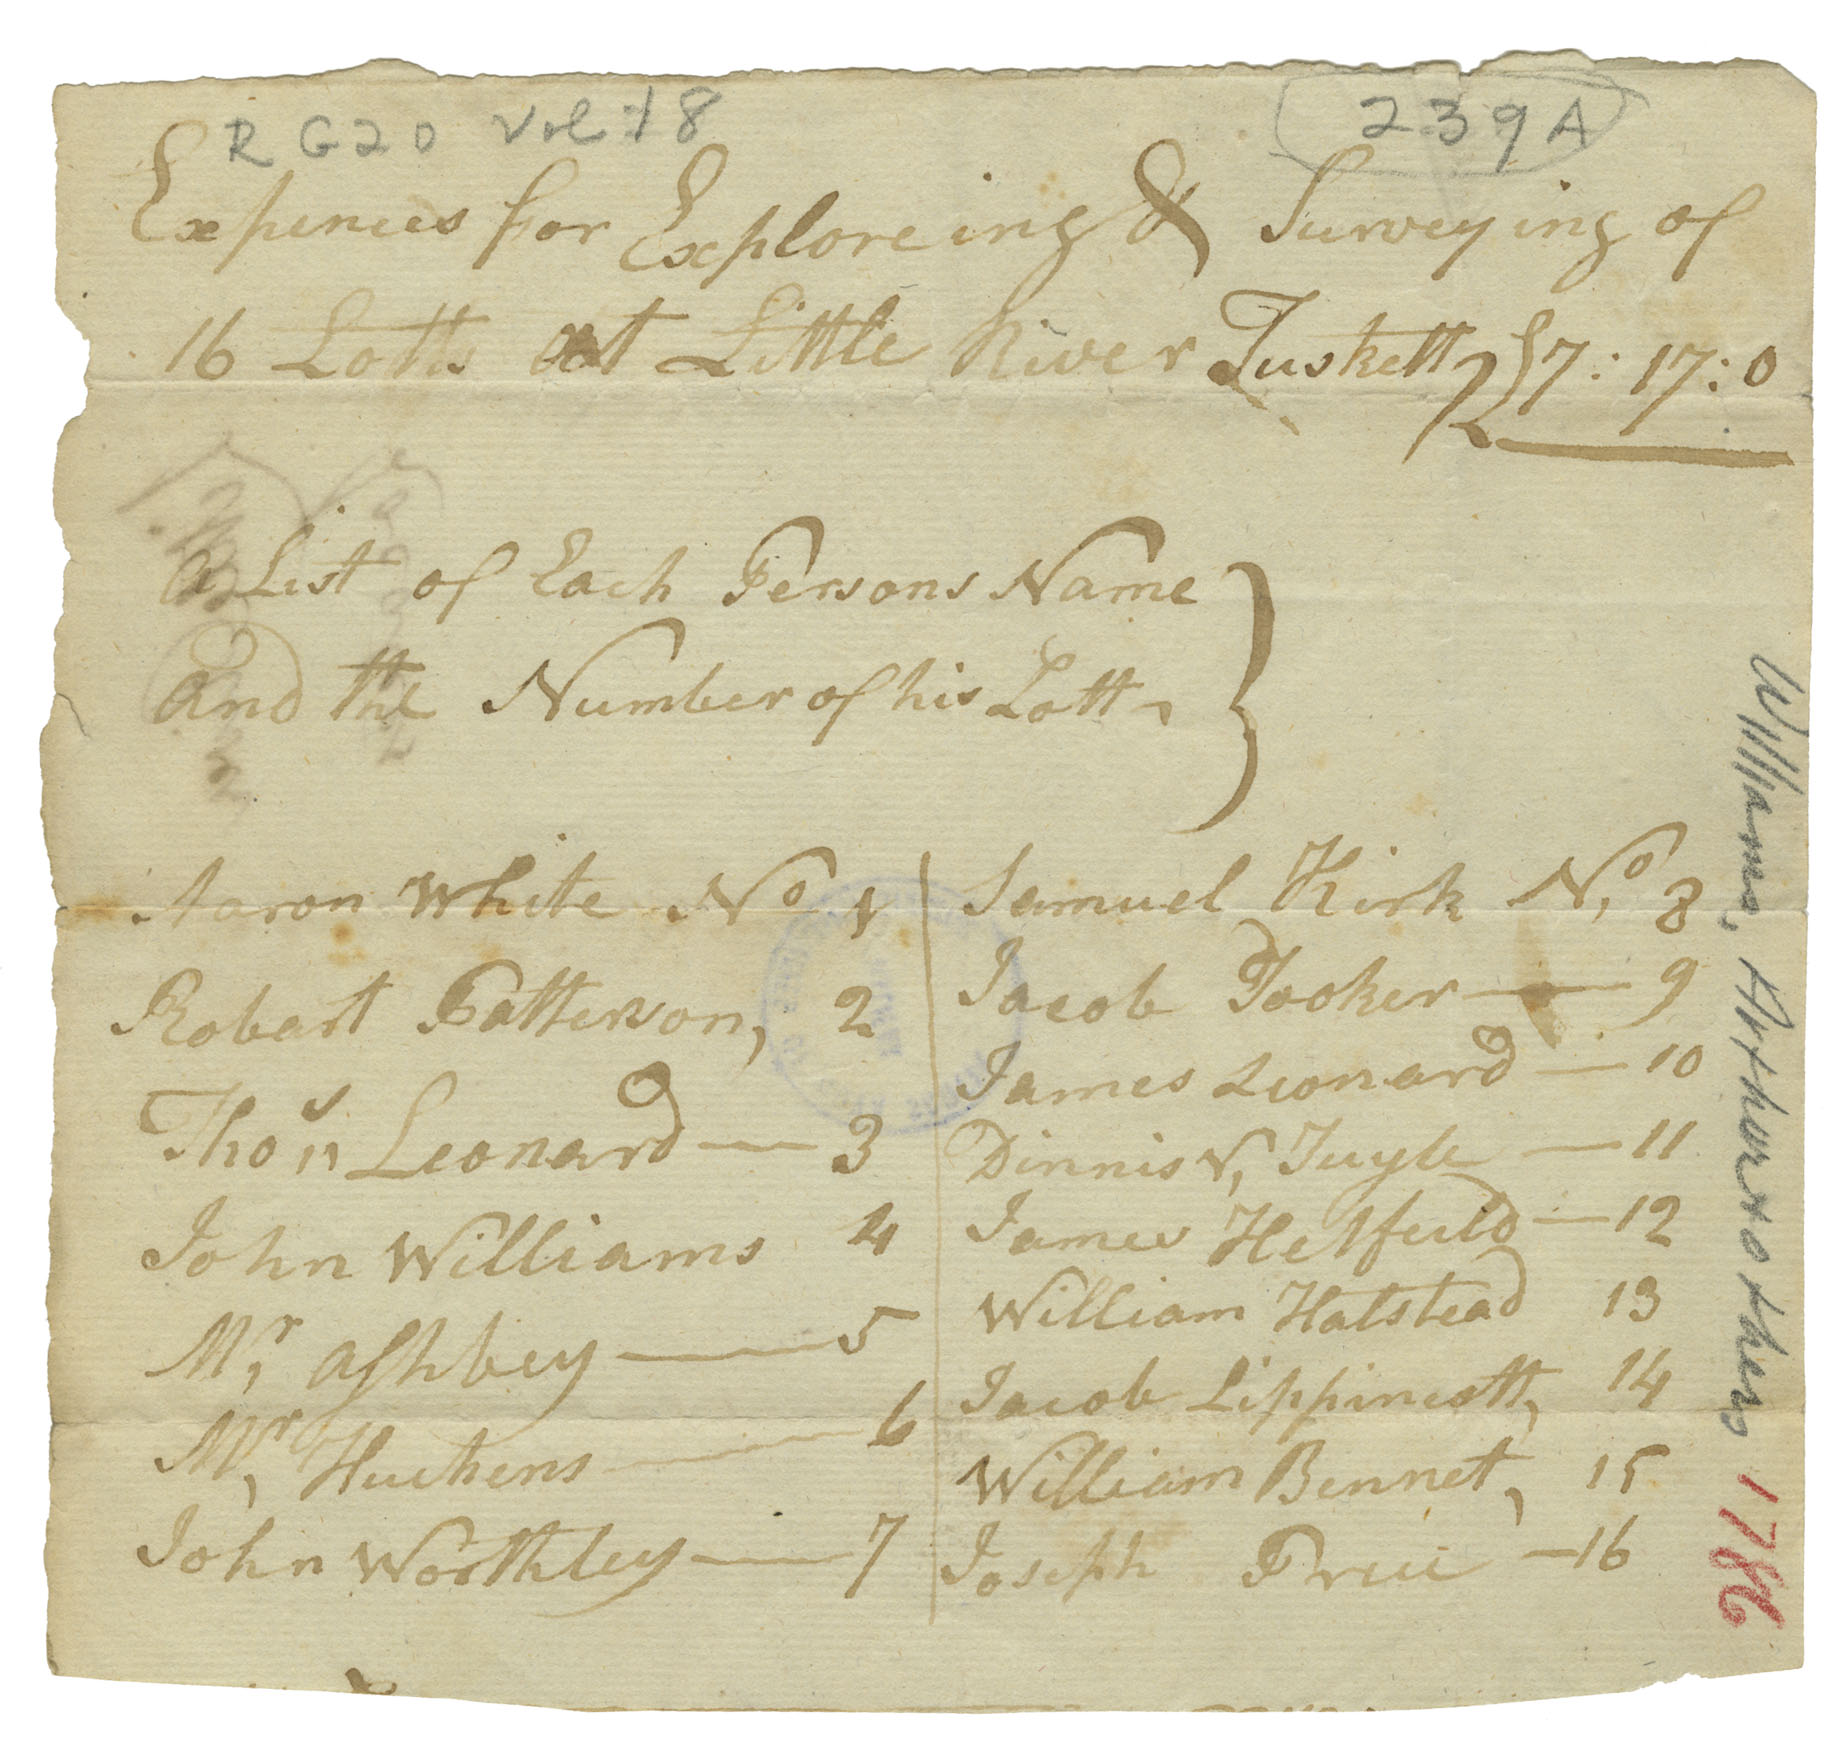 R G 20 Vol 18
239A
Expences for Exploreing & Surveying of
16 Lotts at Little River Tuskett £7:17:0
a List of Each Persons Name
and the Number of his Lott,
Aaron White No 1
Robart Patterson, 2
Thos Leonard — 3
John Williams 4
Mr, Ashbey — 5
Mr, Huchens — 6
John Worthley — 7
Samuel Kirk No, 8
Jacob Tooker — 9
James Leonard — 10
Dinnis V, Tuyle — 11
James Hetfeild — 12
William Halstead 13
Jacob Lippincott, 14
William Bennet, 15
Joseph Price — 16
Williams, Arthur & others
1786